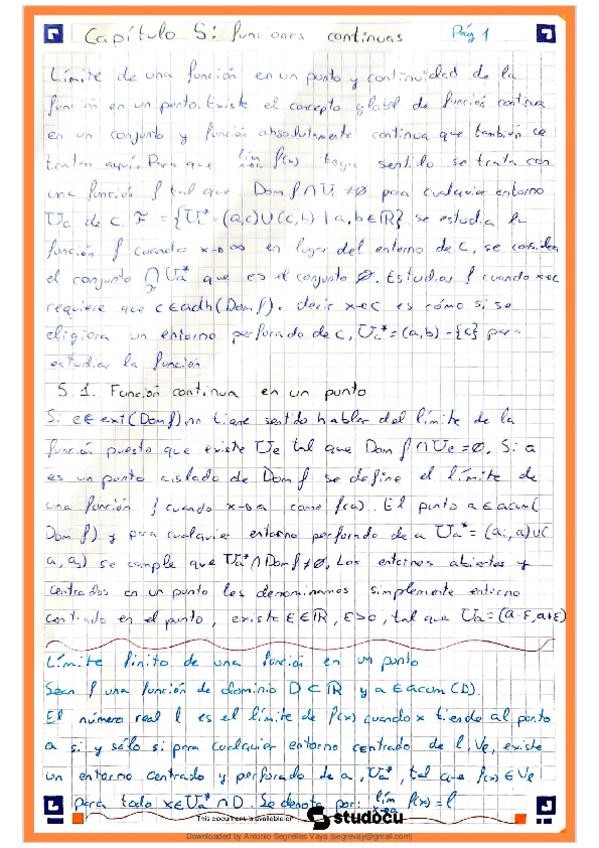 Capítulo 5: funciones continuas Pág 1
Límite de una función en un punto y continuidad de la
función en un punto. Existe el concepto global de función continua
en un conjunto y función absolutamente continua que también se
tratan aquí. Para que lim f(x) tenga sentido se trata con
x→c
una función f tal que Dom f ∩ U ≠ ∅ para cualquier entorno
Uc de c. F = {U* = (a,c)∪(c,b) | a,b∈ℝ} se estudia la
función f cuando x→∞ en lugar del entorno de c, se considera
el conjunto ∩ Ua* que es el conjunto ∅. Estudiar f cuando x→c
requiere que c∈adh(Dom f). decir x→c es cómo si se
eligiera un entorno perforado de c, Uc* = (a,b) - {c} para
estudiar la función
5.1. Función continua en un punto
Si e∈ext(Dom f) no tiene sentido hablar del límite de la
función puesto que existe Ue tal que Dom f ∩ Ue = ∅. Si a
es un punto aislado de Dom f se define el límite de
una función f cuando x→a como f(a). El punto a∈acum(
Dom f) y para cualquier entorno perforado de a Ua* = (a₁,a)∪(
a, a₂) se cumple que Ua* ∩ Dom f ≠ ∅. Los entornos abiertos y
centrados en un punto los denominamos simplemente entorno
centrado en el punto, existe ε∈ℝ, ε>0, tal que Ua = (a-ε, a+ε)
Límite finito de una función en un punto
Sean f una función de dominio D⊂ℝ y a∈acum(D).
El número real l es el límite de f(x) cuando x tiende al punto
a si y sólo si para cualquier entorno centrado de l, Vl, existe
un entorno centrado y perforado de a, Ua*, tal que f(x)∈Vl
para todo x∈Ua* ∩ D. Se denota por: lim f(x) = l
x→a
This document is available on studocu
Downloaded by Antonio Segrelles Vaya (segrevay@gmail.com)